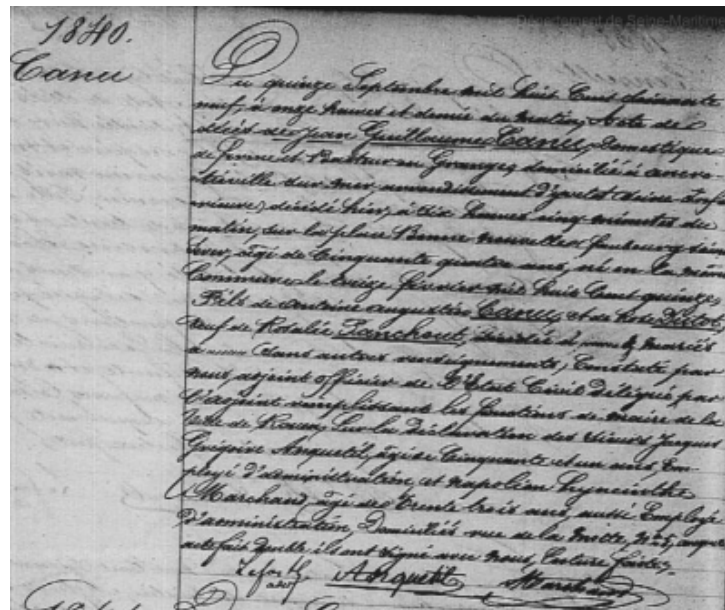 Département de Seine-Maritime
1840.
Canu
Du quinze Septembre mil huit Cent soixante
neuf, à onze heures et demie du matin, Acte de
décès de Jean Guillaume Canu, Domestique
de ferme et Batteur en Granges, domicilié à
sur mer, arrondissement d'Yvetot (Seine Inf
érieure) décédé hier, à dix heures cinq minutes du
matin, sur la place Bonne nouvelle, faubourg Saint
Sever, âgé de Cinquante quatre ans, né en la même
Commune, le février mil huit Cent quinze,
Fils de Antoine Augustin Canu, et de Rose
veuf de Rosalie Panchout, mariés
à sans autres renseignements, Constaté par
nous, adjoint officier de l'Etat Civil Délégué par
l'adjoint remplissant les fonctions de maire de la
Ville de Rouen, Sur la Déclaration des Sieurs Jacques
Grégoire Anquetil, âgé de Cinquante et un ans, Em
ployé d'administration, et Napoléon Hyacinthe
Marchand, âgé de trente trois ans, aussi Employé
d'administration, Domiciliés rue de la motte, N° 5,
fait double ils ont signé avec nous, Lecture faite.
Anquetil Marchand